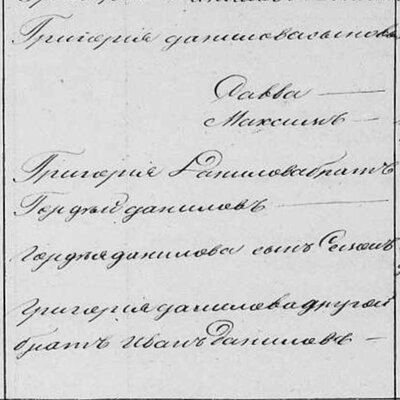 Григорія Данилова сынов
Савва
Максимъ
Григорія Данилова братъ
Гордѣй Даниловъ
Гордѣя Данилова сынъ Семенъ
Григорія Данилова другой
братъ Иванъ Даниловъ